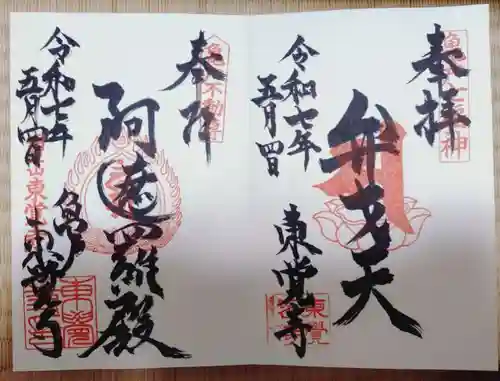 奉拝
弁才天
令和七年
五月四日
東覚寺
奉拝
阿遮羅殿
令和七年
五月四日
亀戸
東覚寺